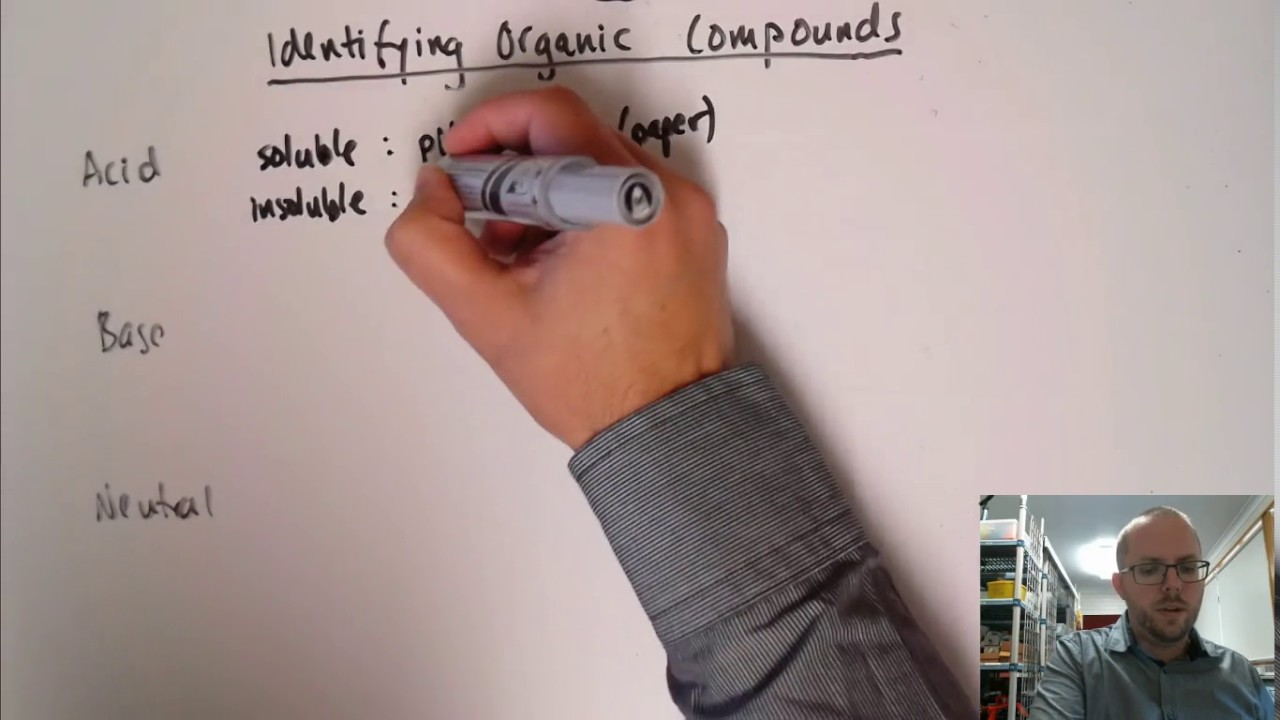 Identifying Organic Compounds
Acid
soluble : (paper)
insoluble :
Base
Neutral